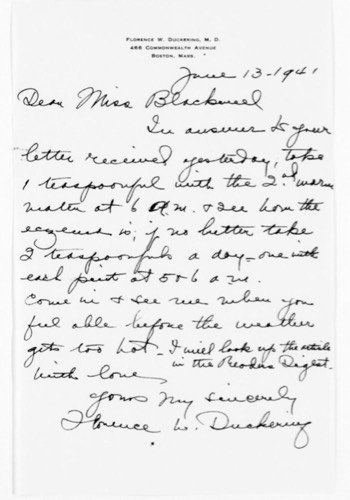 FLORENCE W. DUCKERING, M. D.
466 COMMONWEALTH AVENUE
BOSTON, MASS.
June 13-1941
Dear Miss Blackwell
In answer to your
letter received yesterday, take
1 teaspoonful with the 2nd warm
water at 6 A.M. & see how the
eczema is; if no better take
2 teaspoonfuls a day - one with
each pint at 5 o 6 a m.
Come in & see me when you
feel able before the weather
gets too hot - I will look up the article
in the Readers Digest.
With love
Yours very sincerely
Florence W. Duckering